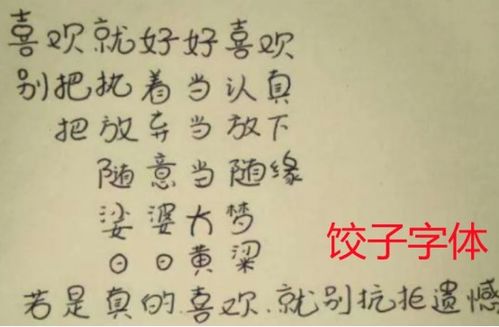 喜欢就好好喜欢
别把执着当认真
把放弃当放下
随意当随缘
娑婆大梦
日日黄粱
饺子字体
若是真的.喜欢.就别抗拒遗憾